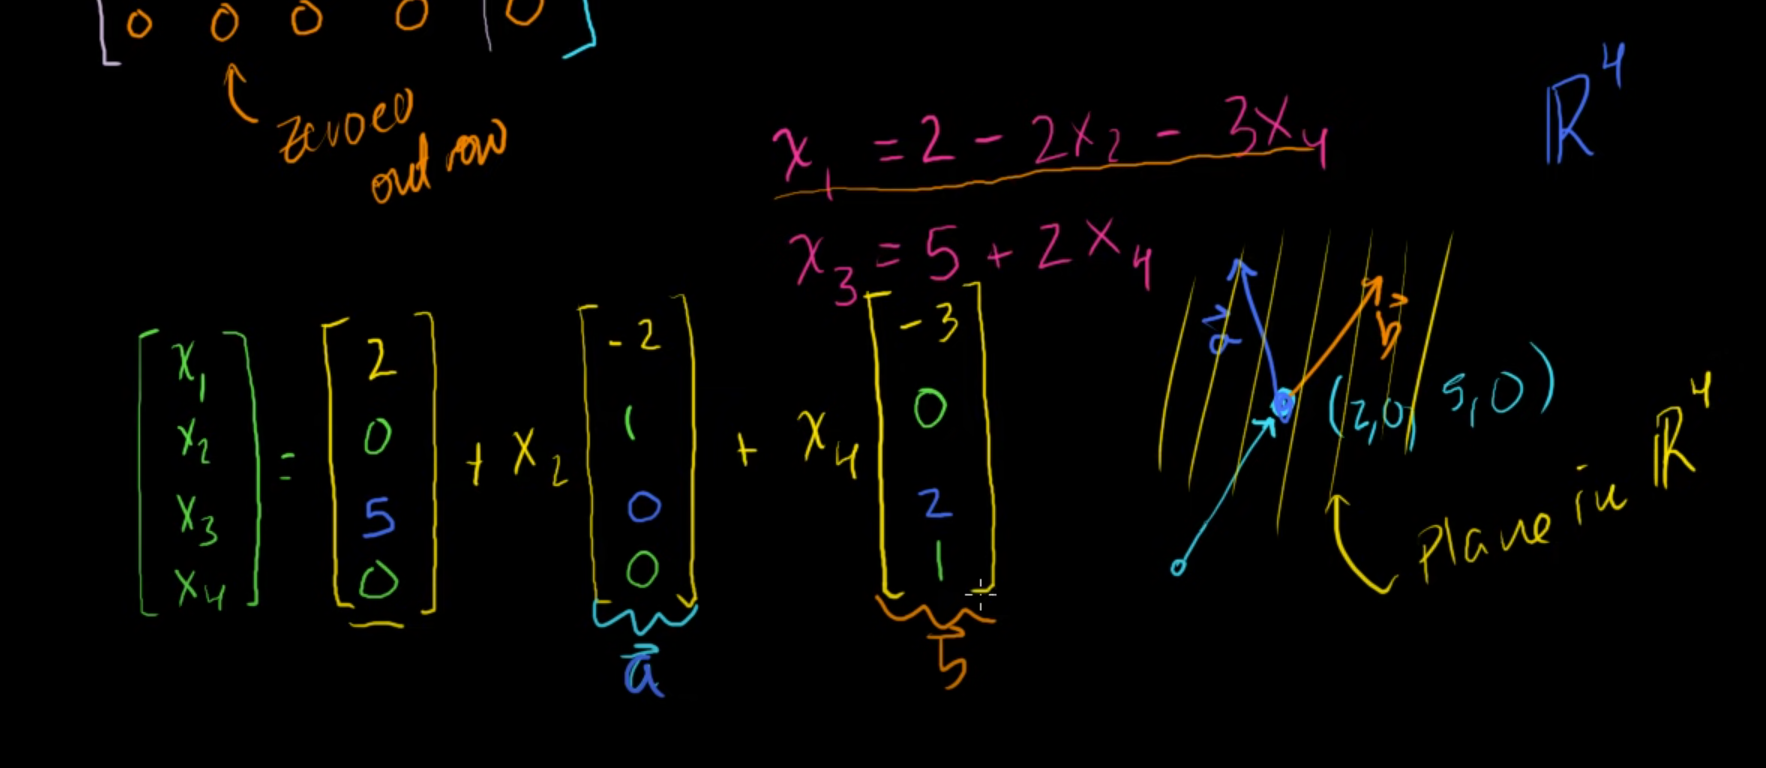 [ 0 0 0 0 | 0 ]
zeroed
out row
ℝ⁴
x₁ = 2 - 2x₂ - 3x₄
x₃ = 5 + 2x₄
[x₁ x₂ x₃ x₄] = [2 0 5 0] + x₂ [-2 1 0 0] + x₄ [-3 0 2 1]
a⃗
b⃗
a⃗
b⃗
(2,0, 5,0)
Plane in ℝ⁴